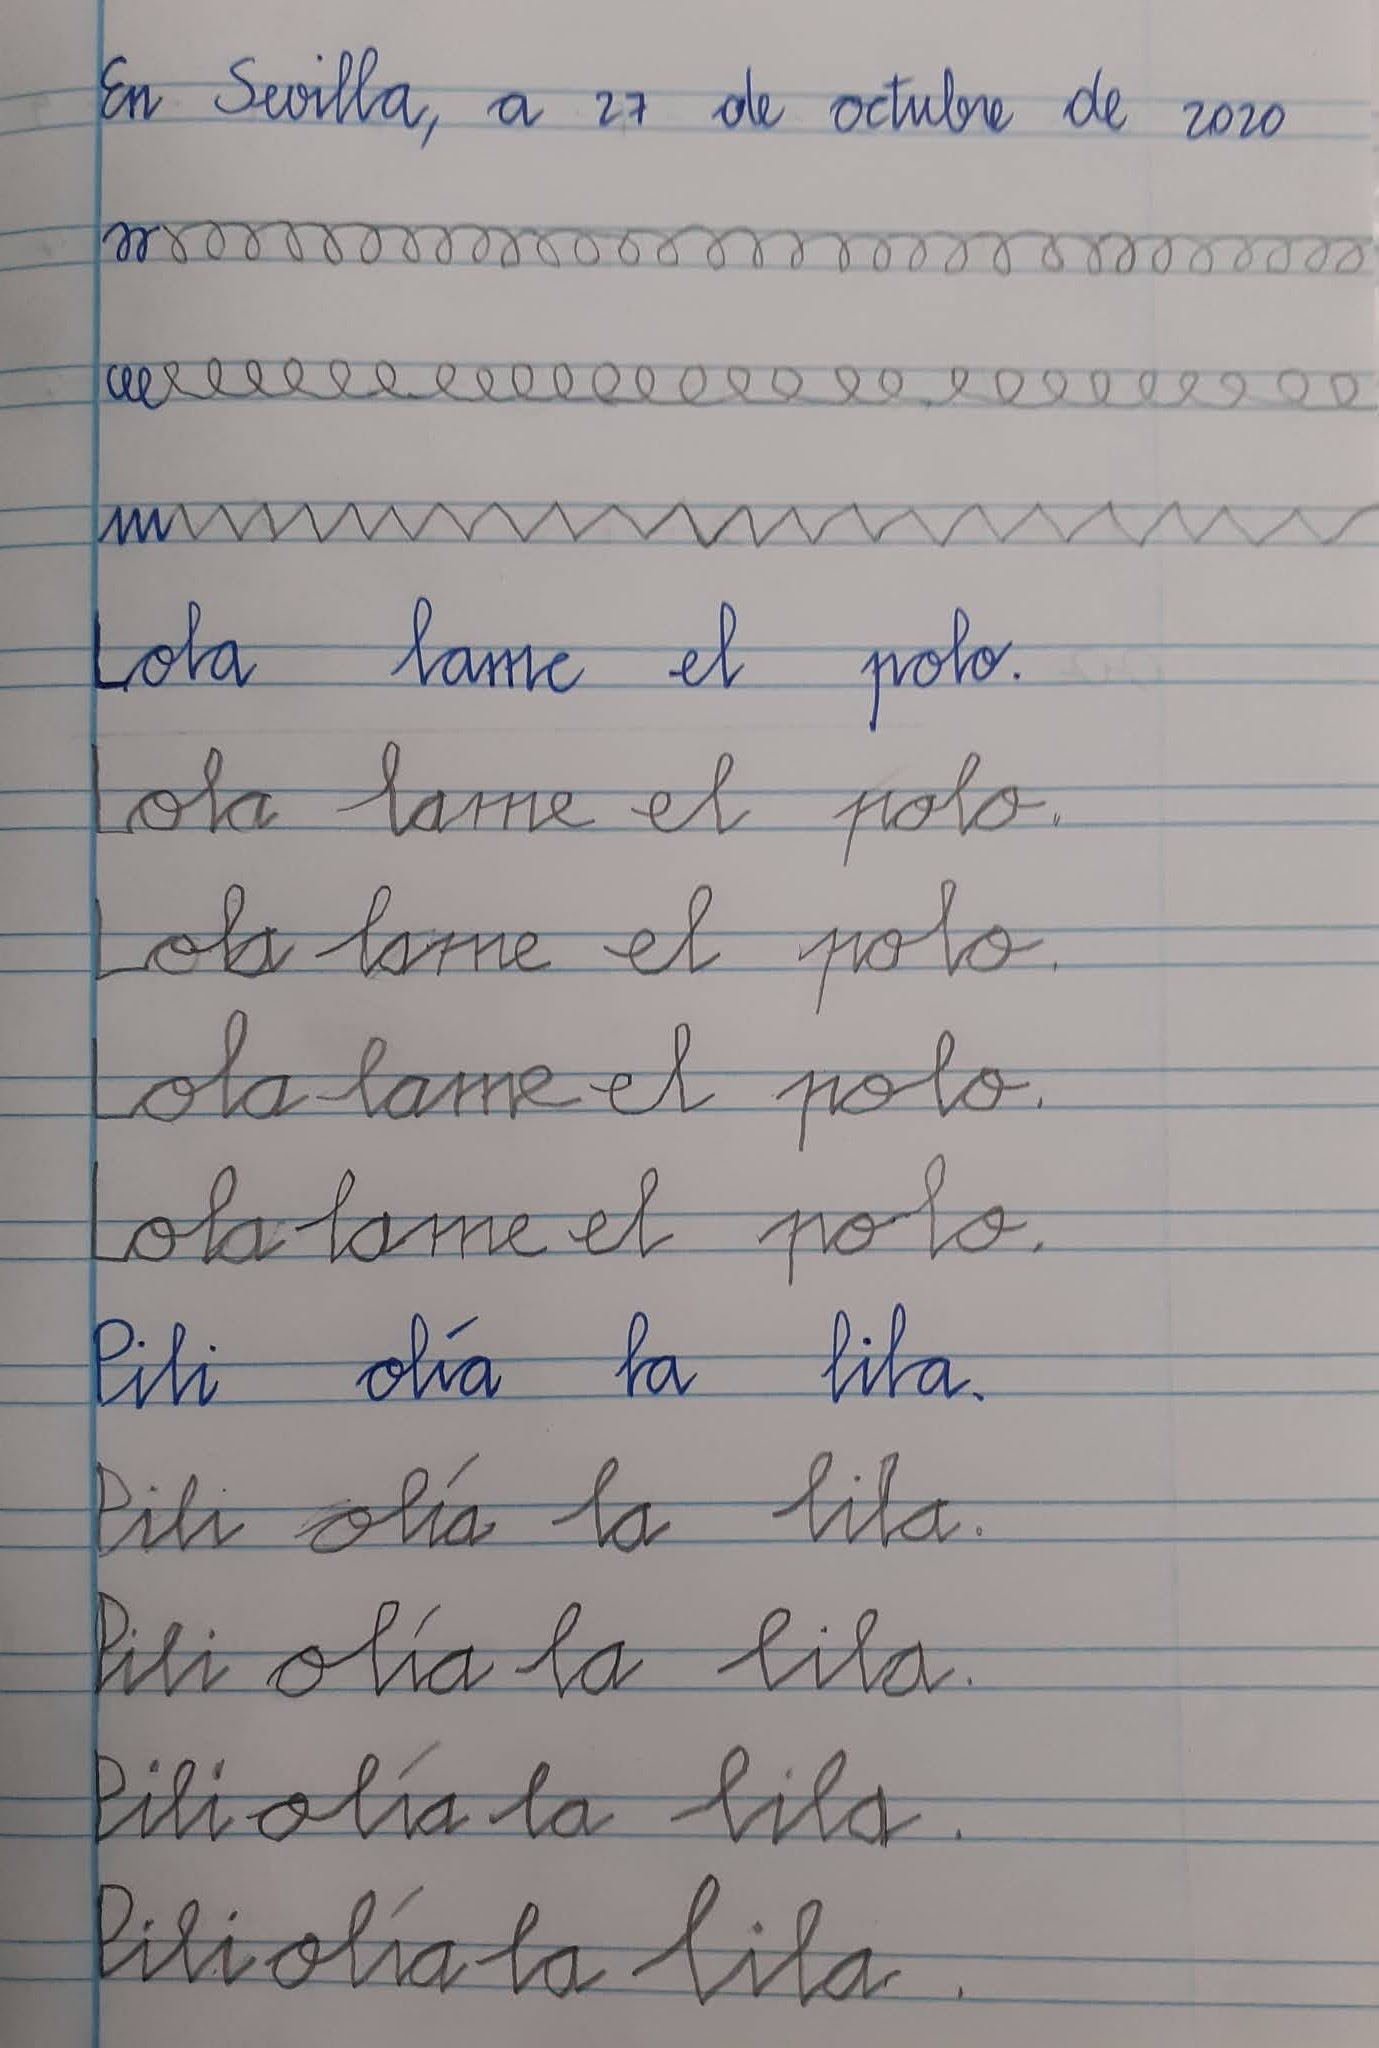 En Sevilla, a 27 de octubre de 2020
Lola lame el polo.
Lola lame el polo.
Lola lame el polo.
Lola lame el polo.
Lola lame el polo.
Pili olía la lila.
Pili olía la lila.
Pili olía la lila.
Pili olía la lila.
Pili olía la lila.